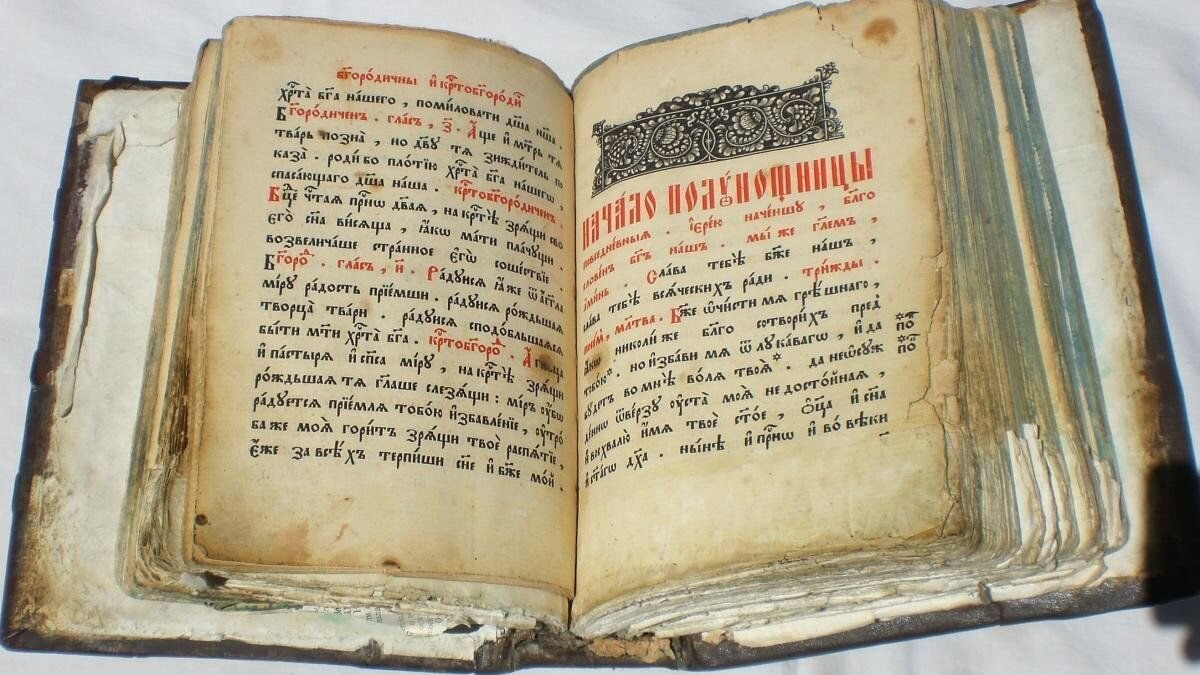 бг҃оро́дичны и҆ крⷭ҇тобг҃оро́ди
хрⷭ҇та̀ бг҃а на́шего , поми́ловати дш҃а на́ша .
Бг҃оро́диченъ . гла́съ , з҃ . А҆́ще и҆ мт҃рь тѧ
тва́рь позна̀ , но дв҃у тѧ зижди́тель по
каза̀ . роди́ бо пло́тїю хрⷭ҇та̀ бг҃а на́шегѡ ,
спаса́ющаго дш҃а на́ша . крⷭ҇тобг҃оро́диченъ .
Бцⷣе чтⷭ҇аѧ при́снѡ дв҃аѧ , на крⷭ҇тѣ̀ зрѧ́щи сво
его̀ сн҃а ви́сѧща , ꙗ҆́кѡ ма́ти пла́чущи .
возвелича́ше стра́нное є҆гѡ̀ соше́ствїе .
Бг҃оро́ . гла́съ , и҃ . Ра́дуйсѧ ꙗ҆́же ѿ а҆́гг҃ла
мі́ру ра́дость прїе́мши . ра́дуйсѧ ро́ждьшаѧ
творца̀ тва́ри . ра́дуйсѧ сподо́бльшаѧсѧ
бы́ти мт҃и хрⷭ҇та̀ бг҃а . крⷭ҇тобг҃оро́ . А҆́гньца
и҆ па́стырѧ и҆ сп҃са мі́ру , на крⷭ҇тѣ̀ зрѧ́щи
ро́ждьшаѧ тѧ гл҃аше слезѧ́щи : мі́ръ ᲂу҆́бѡ
ра́дуетсѧ прїе́млѧ тобо́ю и҆збавле́нїе , ᲂу҆тро́
ба же моѧ̀ гори́тъ зрѧ́щи твоѐ распѧ́тїе ,
є҆́же за всѣ́хъ терпи́ши сн҃е и҆ бж҃е мо́й .
НАЧА́ЛО ПОЛꙊ́НОЩНИЦЫ
повседне́вныѧ . і҆ере́ю наче́ншу , бл҃го
слове́нъ бг҃ъ на́шъ . мы́ же гл҃емъ ,
а҆ми́нь . Сла́ва тебѣ̀ бж҃е на́шъ ,
сла́ва тебѣ̀ всѧ́ческихъ ра́ди . три́жды .
мл҃тва . Бж҃е ѡ҆чи́сти мѧ грѣ́шнаго ,
ꙗ҆́кѡ николи́же бл҃го сотвори́хъ преⷣ
тобо́ю . но и҆зба́ви мѧ ѿ лука́вагѡ , и҆ да
бу́детъ во мнѣ̀ во́лѧ твоѧ̀ . да не ѡ҆суж
де́ннѡ ѿве́рзу ᲂу҆ста̀ моѧ̀ недосто́йнаѧ ,
и҆ восхвалю̀ и҆́мѧ твоѐ ст҃о́е , ѻ҆ц҃а и҆ сн҃а
и҆ ст҃а́гѡ дх҃а . ны́нѣ и҆ при́снѡ и҆ во́ вѣки